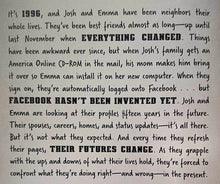 It's 1996, and Josh and Emma have been neighbors
their whole lives. They've been best friends almost as long--up until
last November when EVERYTHING CHANGED. Things
have been awkward ever since, but when Josh's family gets an
America Online CD-ROM in the mail, his mom makes him bring it
over so Emma can install it on her new computer. When they
sign on, they're automatically logged onto Facebook . . . but
FACEBOOK HASN'T BEEN INVENTED YET. Josh and
Emma are looking at their profiles fifteen years in the future.
Their spouses, careers, homes, and status updates--it's all there.
But it's not what they expected. And every time they refresh
their pages, THEIR FUTURES CHANGE. As they grapple
with the ups and downs of what their lives hold, they're forced to
confront what they're doing right--and wrong--in the present.